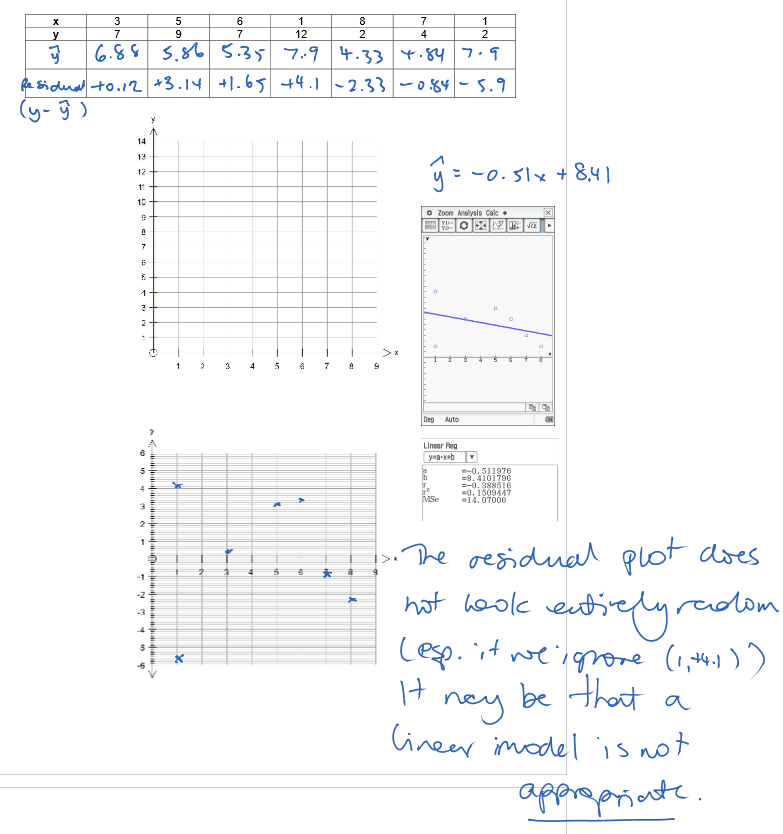 x 3 5 6 1 8 7 1
y 7 9 7 12 2 4 2
ŷ 6.88 5.86 5.35 7.9 4.33 4.84 7.9
Residual +0.12 +3.14 +1.65 +4.1 -2.33 -0.84 -5.9
(y-ŷ)
y
14
13
12
11
10
9
8
7
6
5
4
3
2
1
0
x
1 2 3 4 5 6 7 8 9
ŷ = -0.51x + 8.41
Zoom Analysis Calc
y
1 2 3 4 5 6 7 8
x
Deg Auto
Linear Reg
y=a·x+b
a =-0.511976
b =8.4101796
r =-0.388516
r² =0.1509447
MSe =14.07006
y
6
5
4
3
2
1
0
1 2 3 4 5 6 7 8 9
x
-1
-2
-3
-4
-5
-6
The residual plot does
not look entirely random
(esp. if we ignore (1,+4.1))
It may be that a
linear model is not
appropriate.